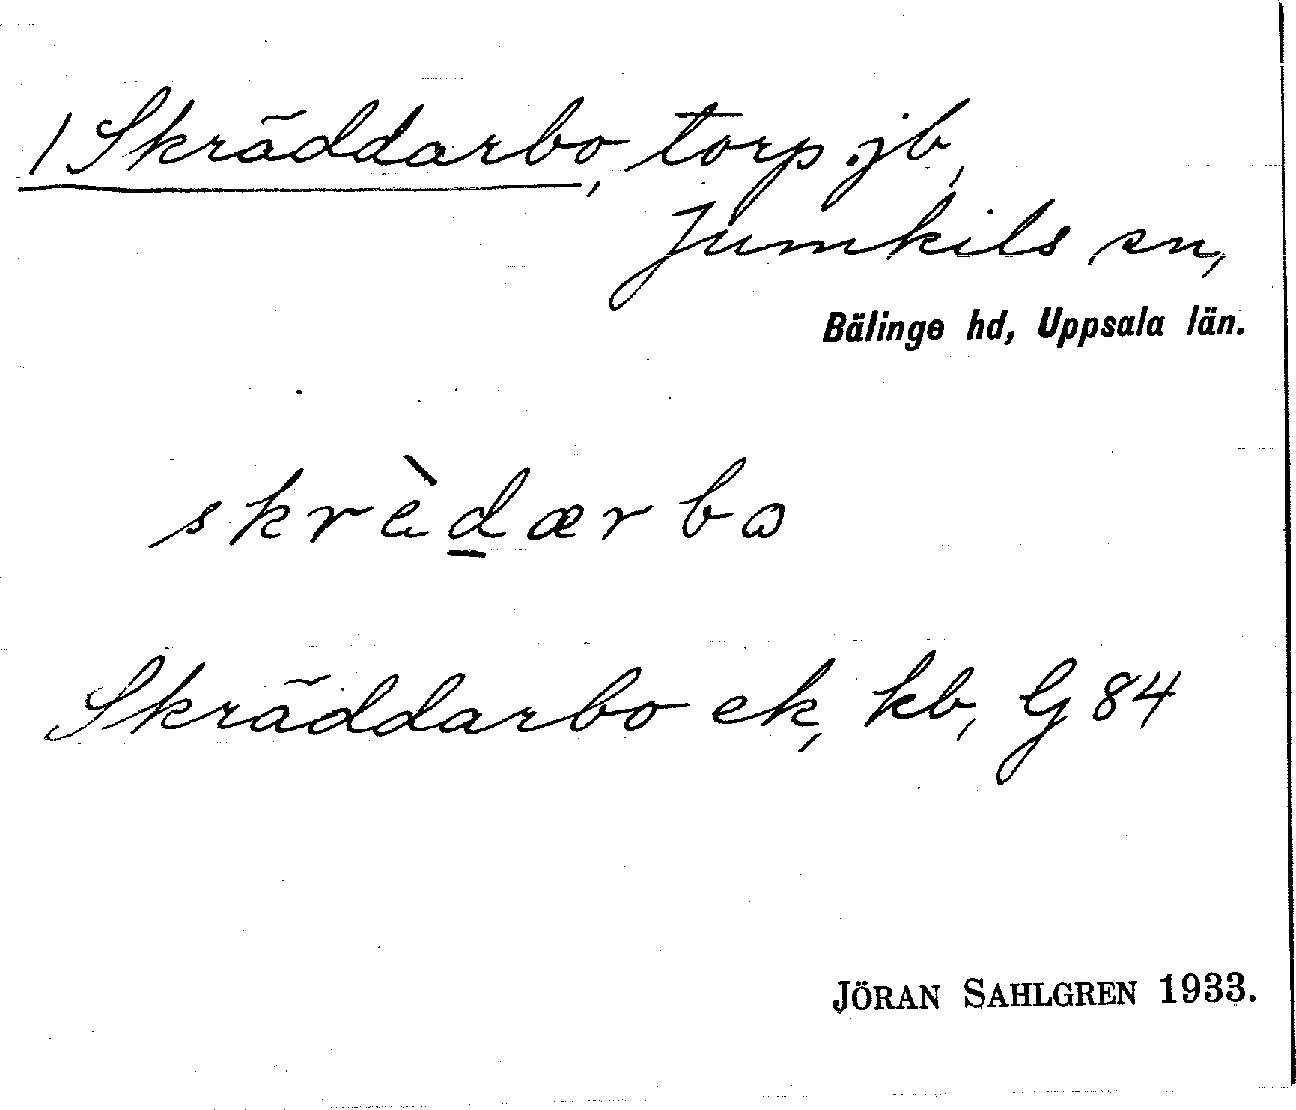 1 Skräddarbo, torp jb,
Jumkils sn,
Bälinge hd, Uppsala län.
skrèd̲ærbɷ
Skräddarbo ek, kb, G 84
JÖRAN SAHLGREN 1933.